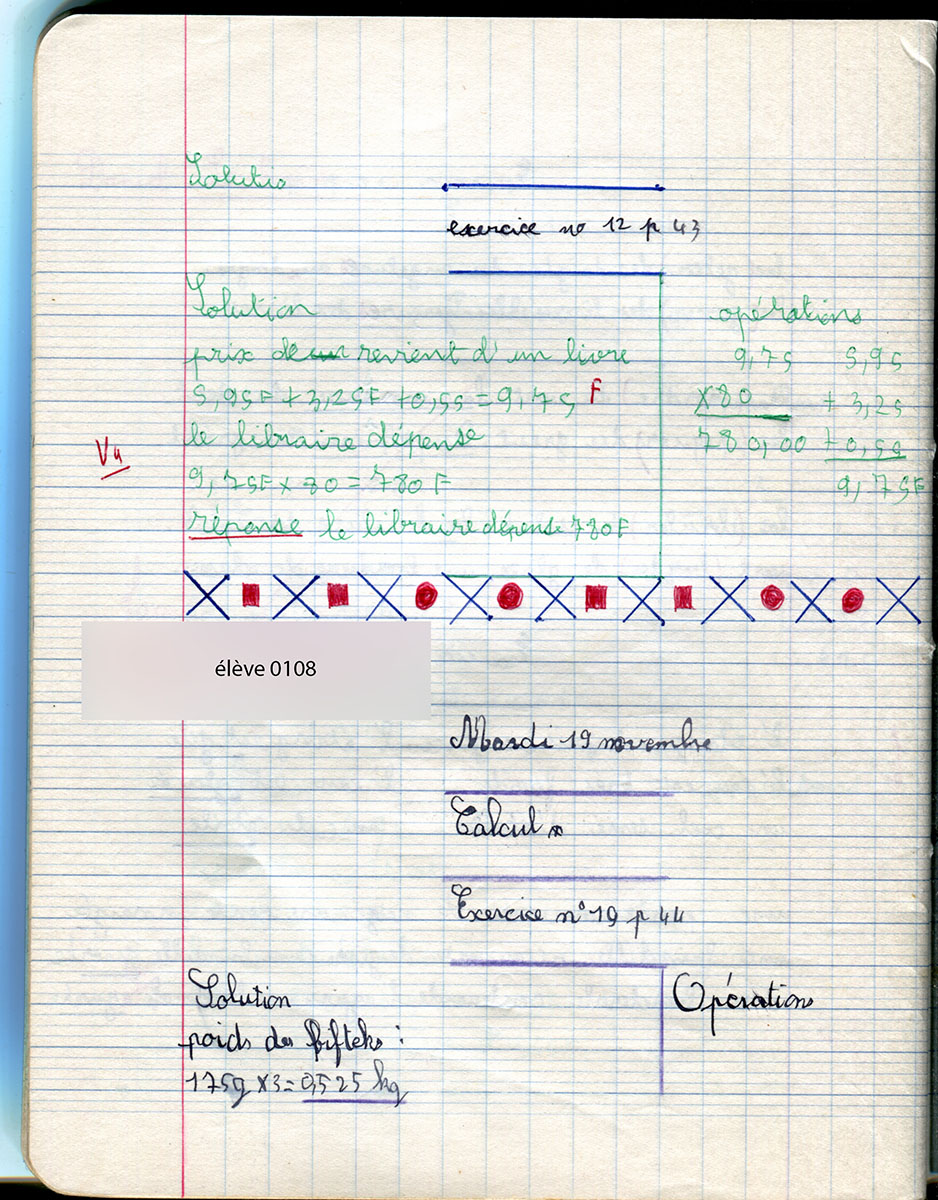 Solutio
exercice no 12 p 43
Solution
opérations
prix de revient d'un livre
5,95F + 3,25F + 0,55 = 9,75 F
le libraire dépense
9,75F × 80 = 780 F
réponse le libraire dépense 780F
9,75
×80
780,00
5,95
+ 3,25
+ 0,55
9,75F
Vu
élève 0108
Mardi 19 novembre
Calcul
Exercice n° 19 p 44
Solution
Opérations
poids des bifteks :
175g × 3 = 0,525 kg